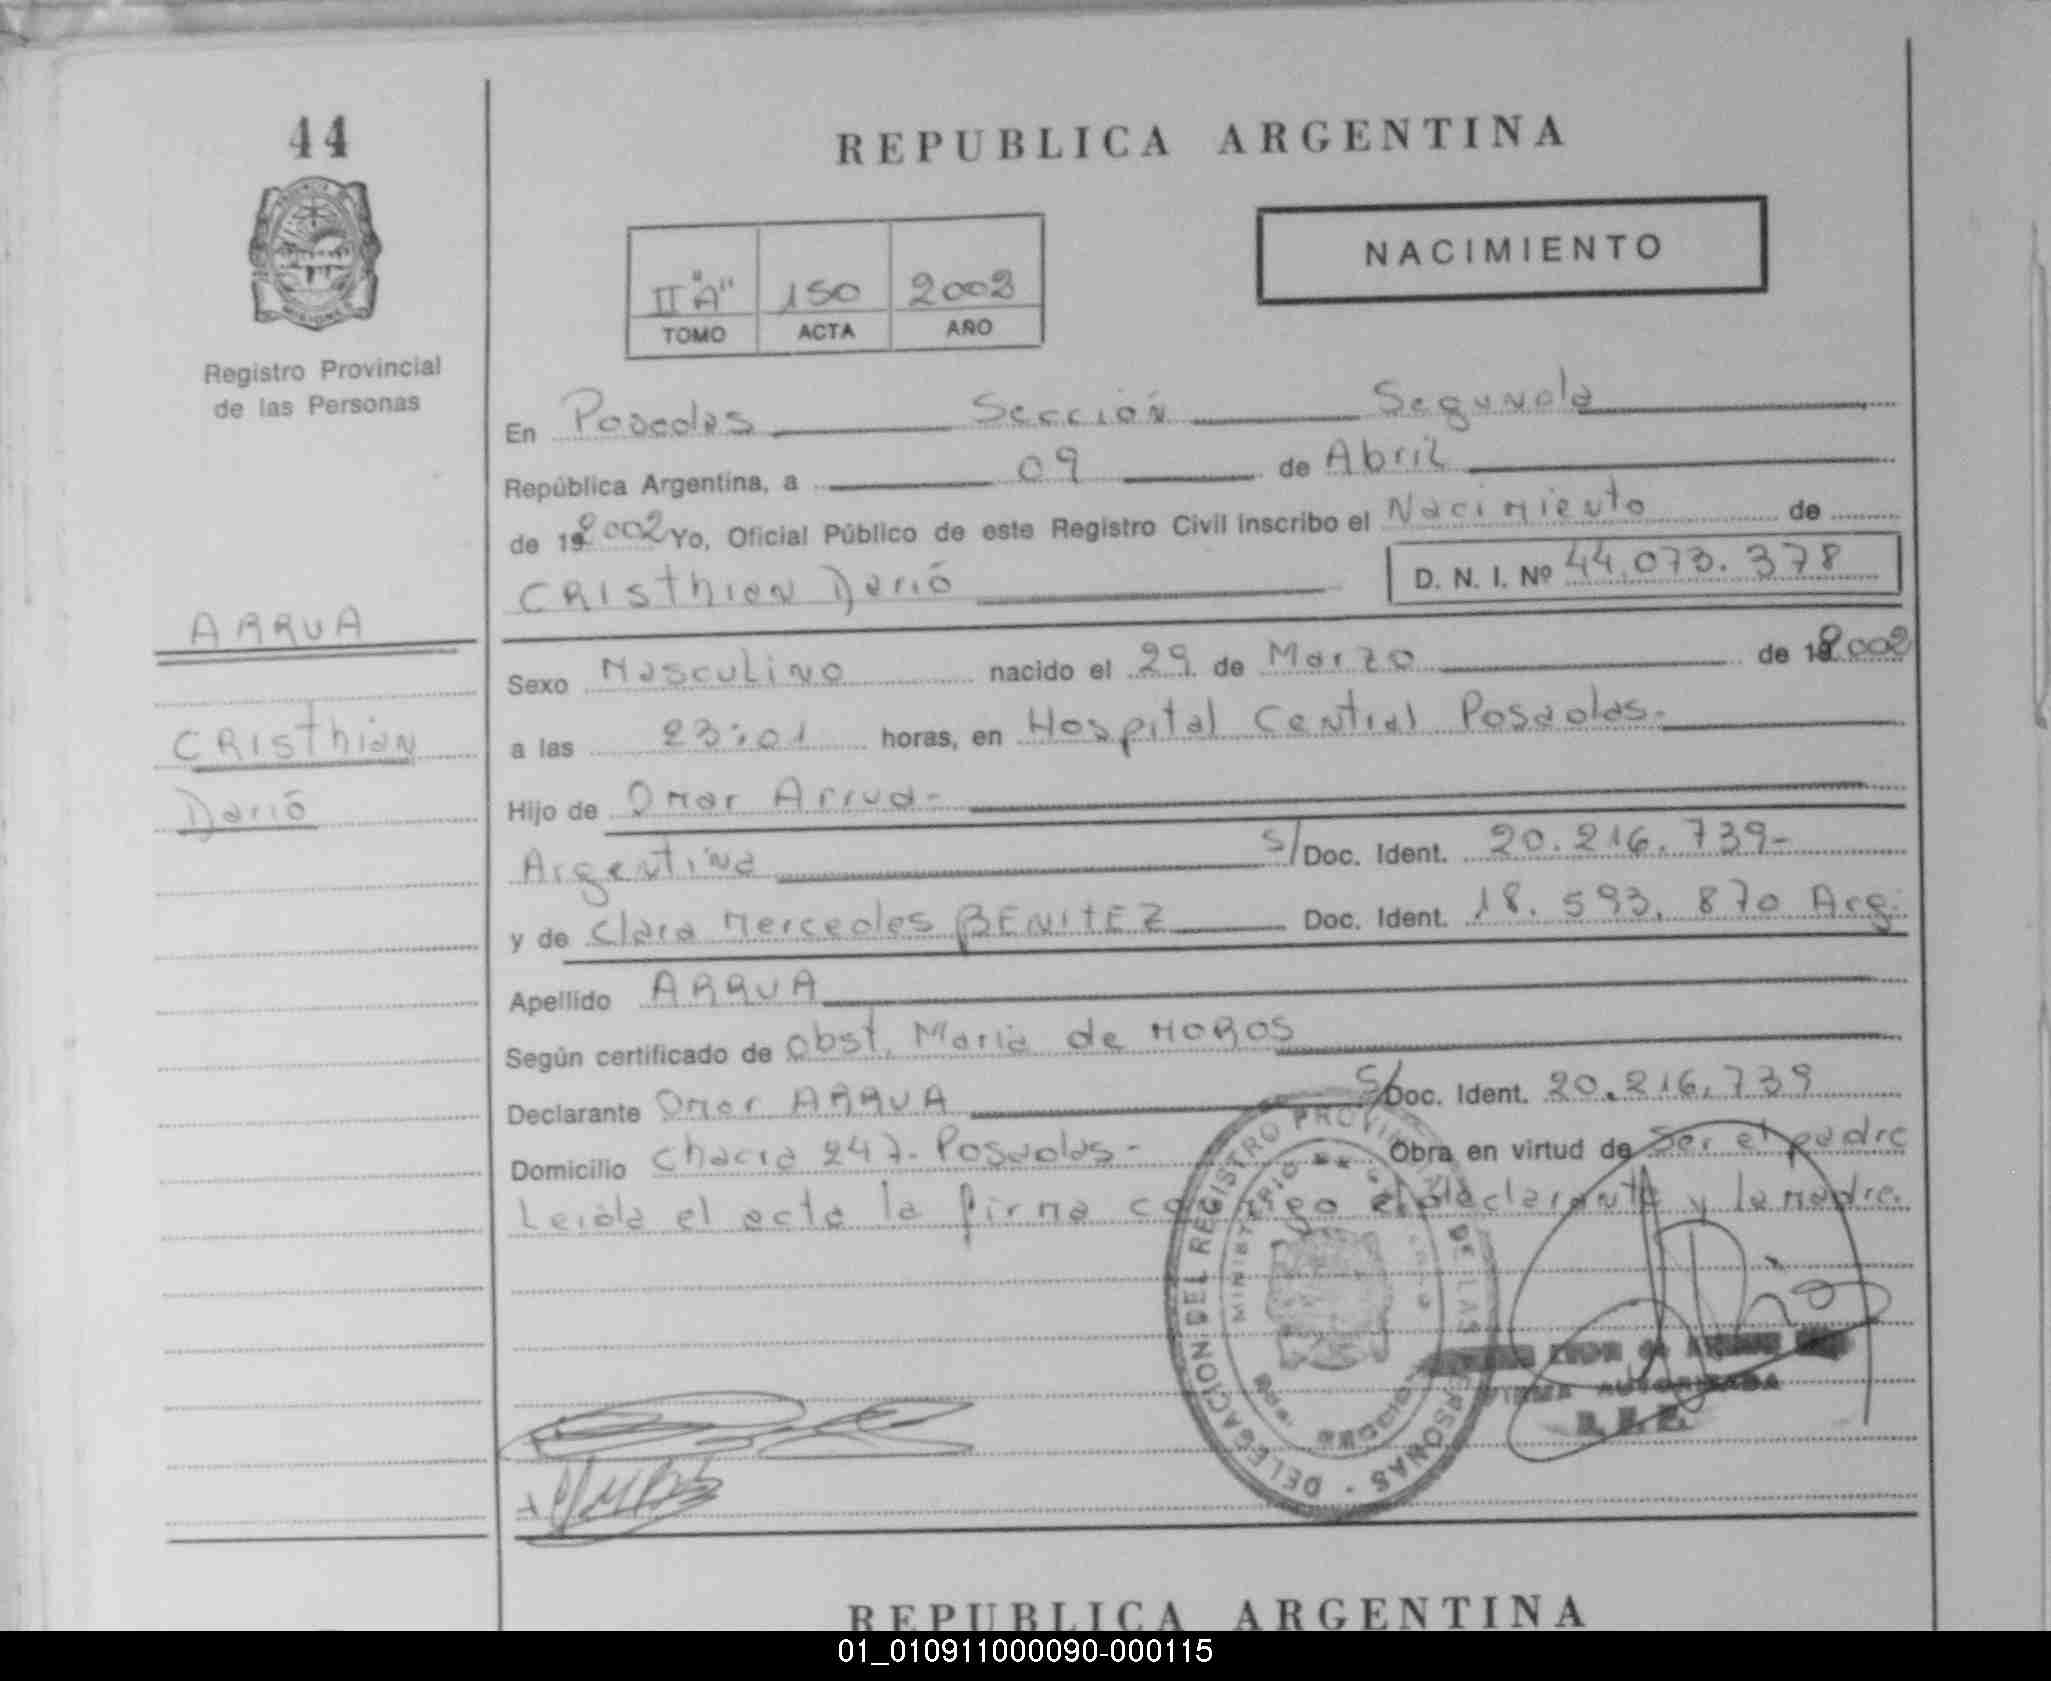 44
REPUBLICA ARGENTINA
NACIMIENTO
II "A" 150 2002
TOMO ACTA AÑO
Registro Provincial
de las Personas
En Posadas Sección Segunda
República Argentina, a 09 de Abril
de 192002 Yo, Oficial Público de este Registro Civil inscribo el Nacimiento de
CRISthian Darió D. N. I. Nº 44.073.378
ARRUA
Sexo Masculino nacido el 29 de Marzo de 192002
CRISthian
a las 23:01 horas, en Hospital Central Posadas.
Darió
Hijo de Omar Arrua-
Argentina s/Doc. Ident. 20.216.739-
y de Clara Mercedes BENITEZ Doc. Ident. 18.593.870 Arg.
Apellido ARRUA
Según certificado de Obst. Maria de MOROS
Declarante Omar ARRUA s/Doc. Ident. 20.216.739
Domicilio Chacra 247- Posadas- Obra en virtud de Ser el padre
Leida el acta la firma conmigo el declarante y la madre.
DELEGACION DEL REGISTRO PROVINCIAL DE LAS PERSONAS
MINISTERIO DE GOBIERNO
FIRMA AUTORIZADA
REPUBLICA ARGENTINA
01_010911000090-000115